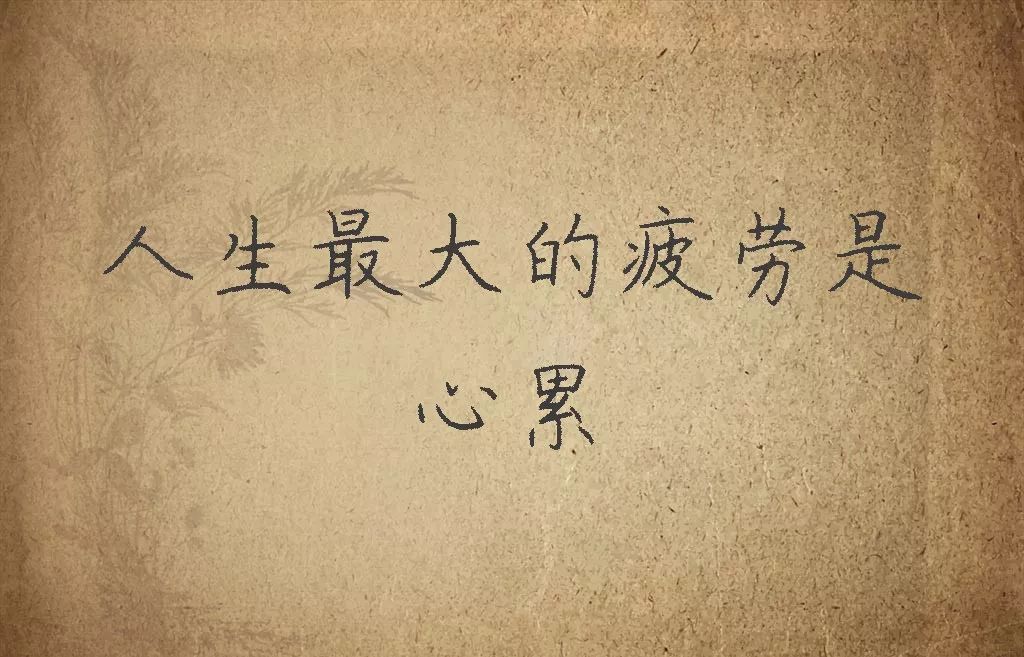 人生最大的疲劳是
心累